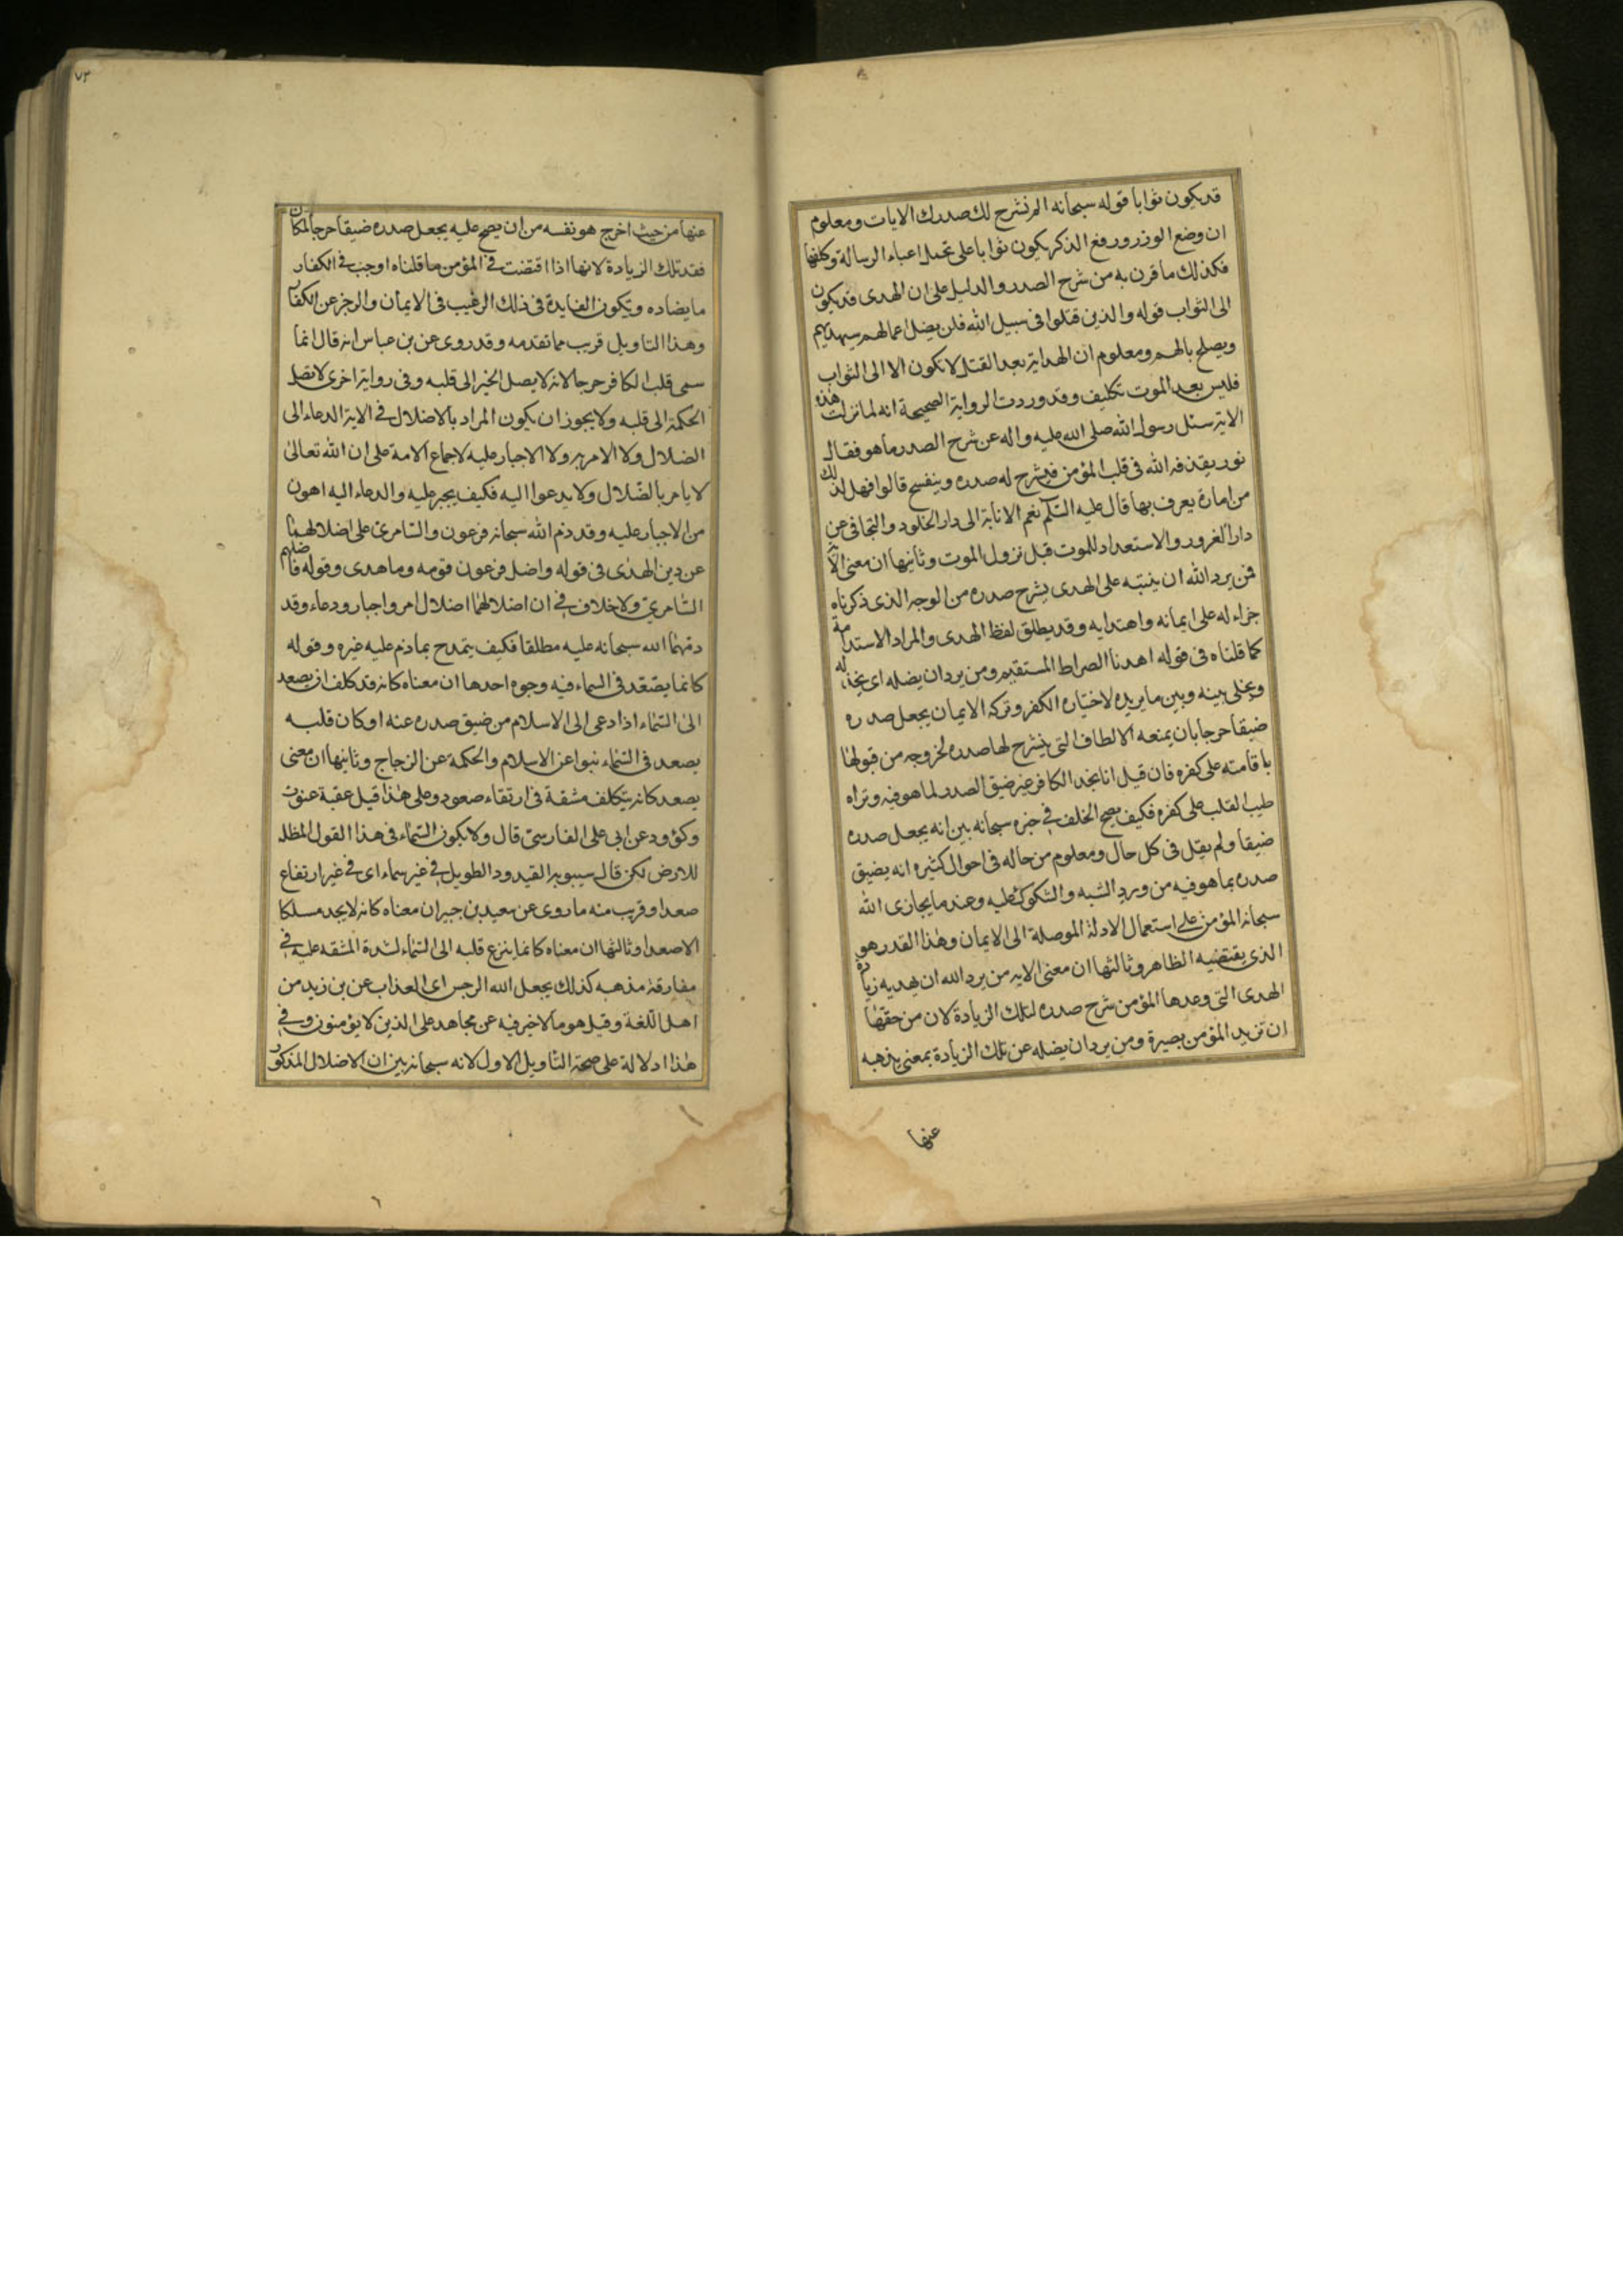 قد يكون ثوابا قوله سبحانه الم نشرح لك صدرك الايات ومعلوم
ان وضع الوزر ورفع الذكر يكون ثوابا على تحمل اعباء الرسالة وكلفها
فكذلك ما قرن به من شرح الصدر والدليل على ان الهدى قد يكون
الى الثواب قوله والذين قتلوا فى سبيل الله فلن يضل اعمالهم سيهديهم
ويصلح بالهم ومعلوم ان الهداية بعد القتل لا تكون الا الى الثواب
فليس بعد الموت تكليف وقد وردت الرواية الصحيحة انه لما نزلت هذه
الاية سئل رسول الله صلى الله عليه واله عن شرح الصدر ما هو فقال
نور يقذفه الله فى قلب المؤمن فيشرح له صدره وينفسح قالوا فهل لذلك
من امارة يعرف بها قال عليه السلم نعم الانابة الى دار الخلود والتجافى عن
دار الغرور والاستعداد للموت قبل نزول الموت وثانيها ان معنى الاية
فمن يرد الله ان يثبته على الهدى يشرح صدره من الوجه الذى ذكرناه
جزاء له على ايمانه واهتدايه وقد يطلق لفظ الهدى والمراد الاستدامة
كما قلناه فى قوله اهدنا الصراط المستقيم ومن يرد ان يضله اى يخذله
ويخلى بينه وبين ما يريده لاختياره الكفر وتركه الايمان يجعل صدره
ضيقا حرجا بان يمنعه الالطاف التى ينشرح لها صدره لخروجه من قبولها
باقامته على كفره فان قيل انا نجد الكافر غير ضيق الصدر لما هو فيه ونراه
طيب القلب على كفره فكيف يصح الخلف فى خبره سبحانه بين انه يجعل صدره
ضيقا ولم يقل فى كل حال ومعلوم من حاله فى احوال كثيره انه يضيق
صدره بما هو فيه من ورود الشبه والشكوك عليه وعند ما يجازى الله
سبحانه المؤمن على استعمال الادلة الموصلة الى الايمان وهذا القدر هو
الذى يقتضيه الظاهر وثالثها ان معنى الايه من يرد الله ان يهديه زيادة
الهدى التى وعدها المؤمن شرح صدره لتلك الزيادة لان من حقها
ان تزيد المؤمن بصيرة ومن يرد ان يضله عن تلك الزيادة بمعنى يذهبه
عنها
٧٣
عنها من حيث اخرج هو نفسه من ان يصح عليه يجعل صدره ضيقا حرجا لمكان
فقد تلك الزيادة لانها اذا اقتضت فى المؤمن ما قلناه اوجب فى الكفار
ما يضاده ويكون الفايدة فى ذلك الرغيب فى الايمان والزجر عن الكفار
وهذا التاويل قريب مما تقدمه وقد روى عن بن عباس انه قال انما
سمى قلب الكافر حرجا لانه لا يصل الخير الى قلبه وفى رواية اخرى لا تصل
الحكمة الى قلبه ولا يجوز ان يكون المراد بالاضلال فى الاية الدعاء الى
الضلال ولا الامر به ولا الاجبار عليه لاجماع الامة على ان الله تعالى
لا يامر بالضلال ولا يدعوا اليه فكيف يجبر عليه والدعاء اليه اهون
من الاجبار عليه وقد ذم الله سبحانه فرعون والسامرى على اضلالهما
عن دين الهدى فى قوله واضل فرعون قومه وما هدى وقوله فاضلهم
السامرى ولا خلاف فى ان اضلالهما اضلال امر واجبار ودعاء وقد
ذمهما الله سبحانه عليه مطلقا فكيف يتمدح بما ذم عليه غيره وقوله
كانما يصعد فى السماء فيه وجوه احدها ان معناه كانه قد كلف ان يصعد
الى السماء اذا دعى الى الاسلام من ضيق صدره عنه او كان قلبه
يصعد فى السماء نبوا عن الاسلام والحكمة عن الزجاج وثانيها ان معنى
يصعد كانه يتكلف مشقة فى ارتقاء صعود وعلى هذا قيل عقبة عنوت
وكؤود عن ابى على الفارسى قال ولا يكون السماء فى هذا القول المظله
للارض لكن قال سيبويه القيدود الطويل فى غير سماء اى فى غير ارتفاع
صعدا وقريب منه ما روى عن سعيد بن جبير ان معناه كانه لا يجد مسلكا
الا صعدا وثالثها ان معناه كانما ينزع قلبه الى السماء لشدة المشقه عليه فى
مفارقة مذهبه كذلك يجعل الله الرجس اى العذاب عن بن زيد من
اهل اللغة وقيل هو ما لا خير فيه عن مجاهد على الذين لا يؤمنون وفى
هذا ادلالة على صحة التاويل الاول لانه سبحانه بين ان الاضلال المذكور